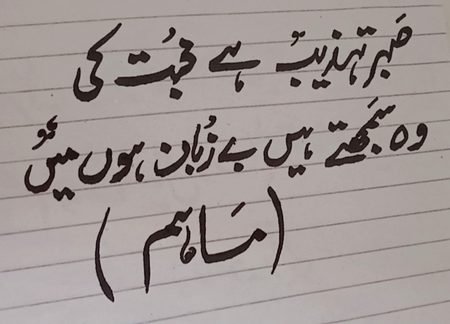 صَبر تہذیبؔ ہے محبُت کی
وہ سَمجھتے ہیں بے زُبان ہوں میںؔ
(مَاہم)